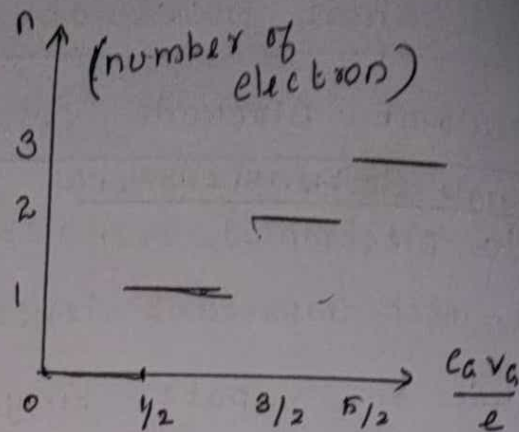 n
(number of
electron)
3
2
1
0 1/2 3/2 5/2
CG VG
e